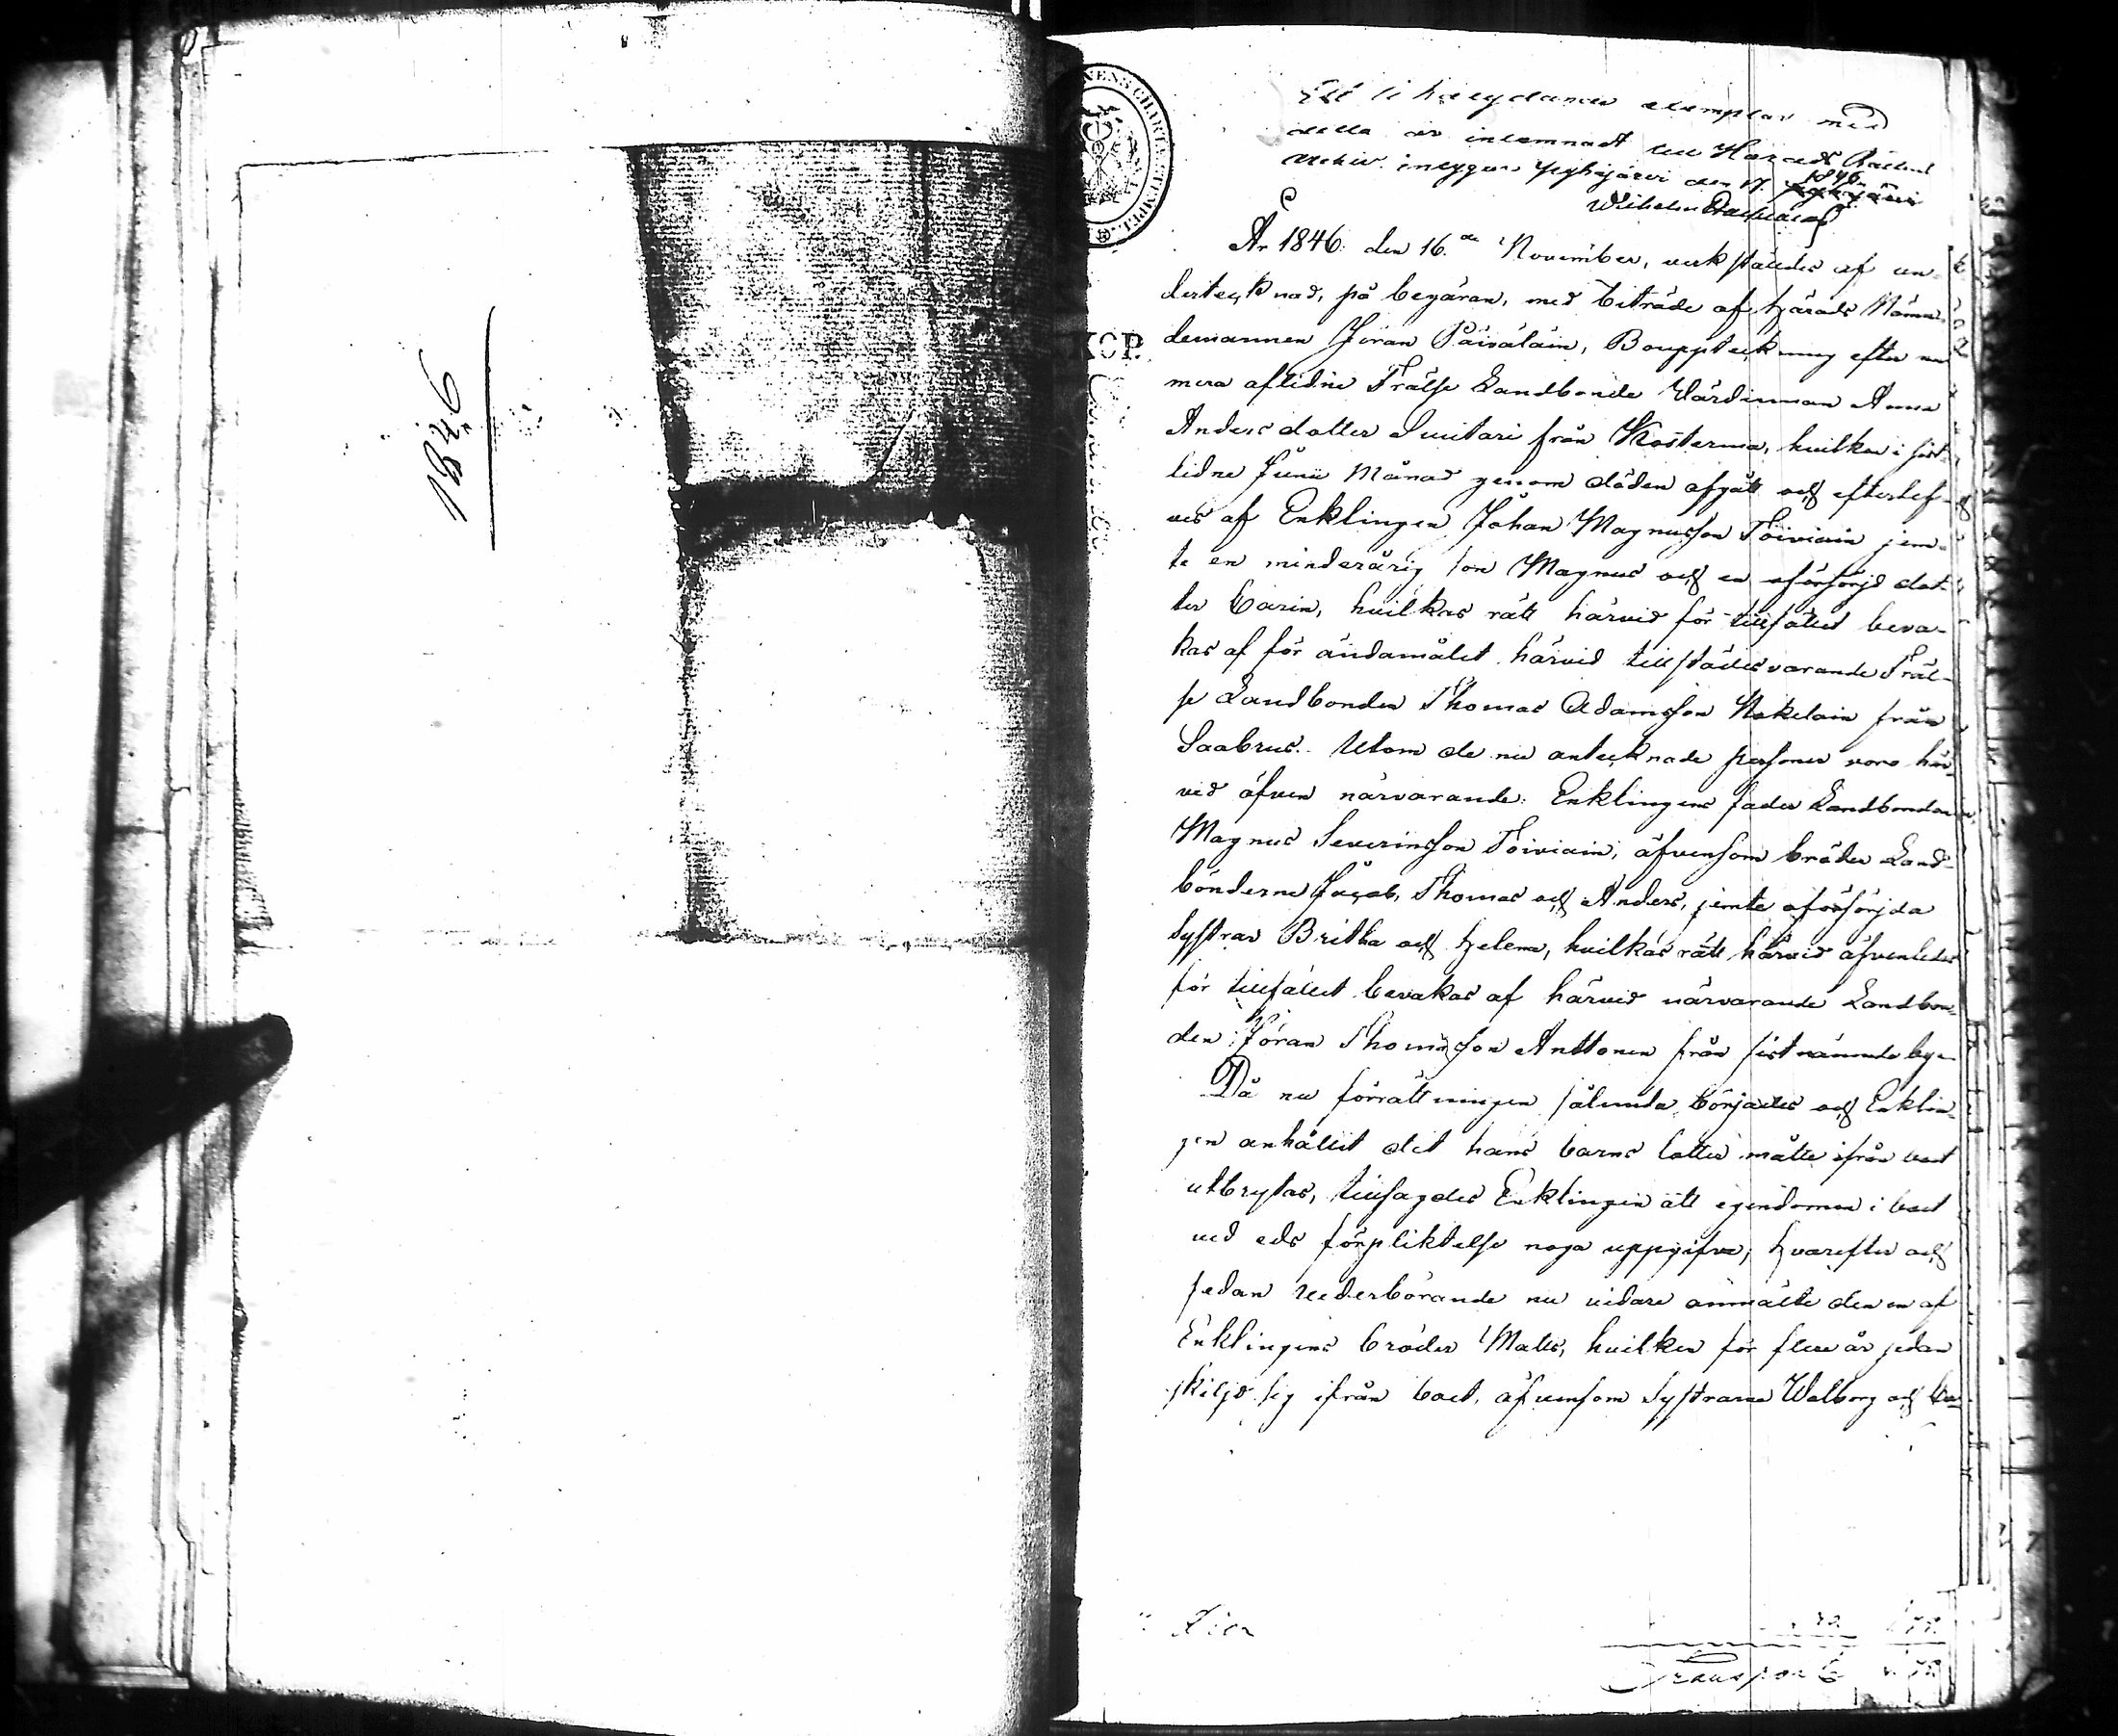 1846
Ett li lydande exemplar med
detta är inlemnadt till Härads Rättens
Archiv. intygar Pyhäjärvi den 17
1846
Wilhelm
År 1846 den 16de November, verkstäldes af un-
dertecknad, på begäran, med biträde af Härads Nämn-
demannen Jöran Päiväläin, Bouppteckning efter nu
mera aflidne Frälse Landbonde Värdinnan Anna
Andersdotter Suutari från Kosterma, hvilken i sist-
lidne Junii Månad genom döden afgått och efterlef-
ves af Enklingen Johan Magnusson Toiviain jem-
te en minderårig son Magnus och en oförsörjd dot-
ter Carin, hvilkas rätt härvid för tillfället beva-
kas af för ändamålet härvid tillstädesvarande Fräl-
se Landbonden Thomas Adamsson Nokelain från
Saabrus. Utom de nu antecknade personer voro här-
vid äfven närvarande: Enklingens fader Landbonden
Magnus Severinsson Toiviain, äfvensom bröder Land-
bönderne Jacob, Thomas och Anders, jemte oförsörjda
Systrar Britha och Helena, hvilkas rätt härvid äfvenledes
för tillfället bevakas af härvid närvarande Landbon-
den Jöran Thomasson Anttonen från sistnämnde by.
Då nu förrättningen sålunda börjades och Enklin-
gen anhållit det hans barns lotter måtte ifrån boet
utbrytas, tillsagdes Enklingen att egendomen i boet
vid eds förpliktelse noga uppgifva; hvarefter och
sedan vederbörande nu vidare anmälte den en af
Enklingens bröder Matts, hvilken för flere år sedan
skiljt sig ifrån boet, äfvensom Systrarna Walborg och
Transport